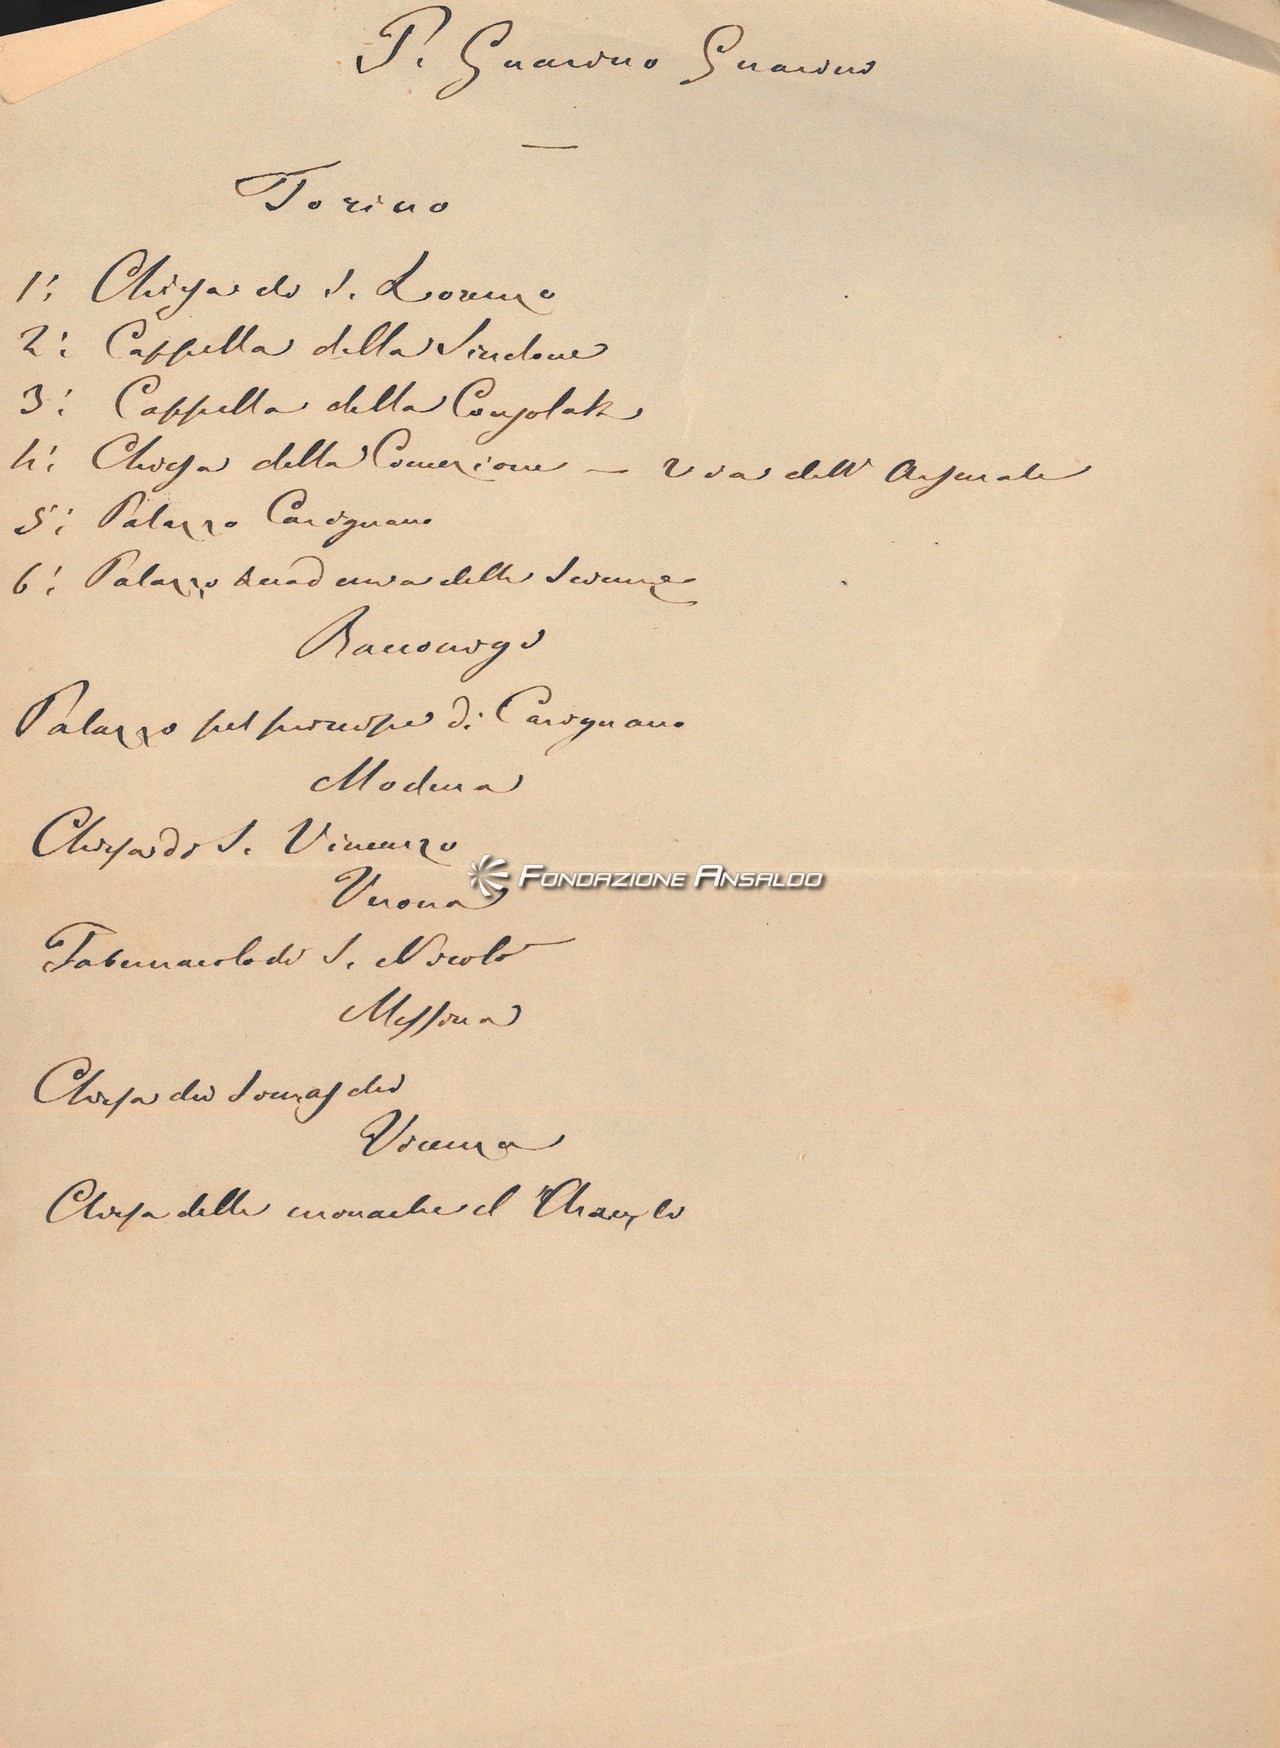 P. Guarino Guarini
Torino
1: Chiesa di S. Lorenzo
2: Cappella della Sindone
3: Cappella della Consolata
4: Chiesa della Concezione — Via dell' Arsenale
5: Palazzo Carignano
6: Palazzo Accademia delle Scienze
Racconigi
Palazzo pel principe di Carignano
Modena
Chiesa di S. Vincenzo
FONDAZIONE ANSALDO
Verona
Tabernacolo di S. Nicolò
Messina
Chiesa dei Somaschi
Vicenza
Chiesa delle monache d'